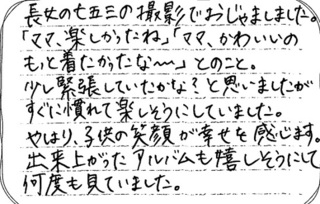 長女の七五三の撮影でおじゃましました。
「ママ、楽しかったね」「ママ、かわいいの
もっと着たかったな〜」とのこと。
少し緊張していたかな？と思いましたが
すぐに慣れて楽しそうにしていました。
やはり、子供の笑顔が幸せを感じます。
出来上がったアルバムも嬉しそうにして
何度も見ていました。